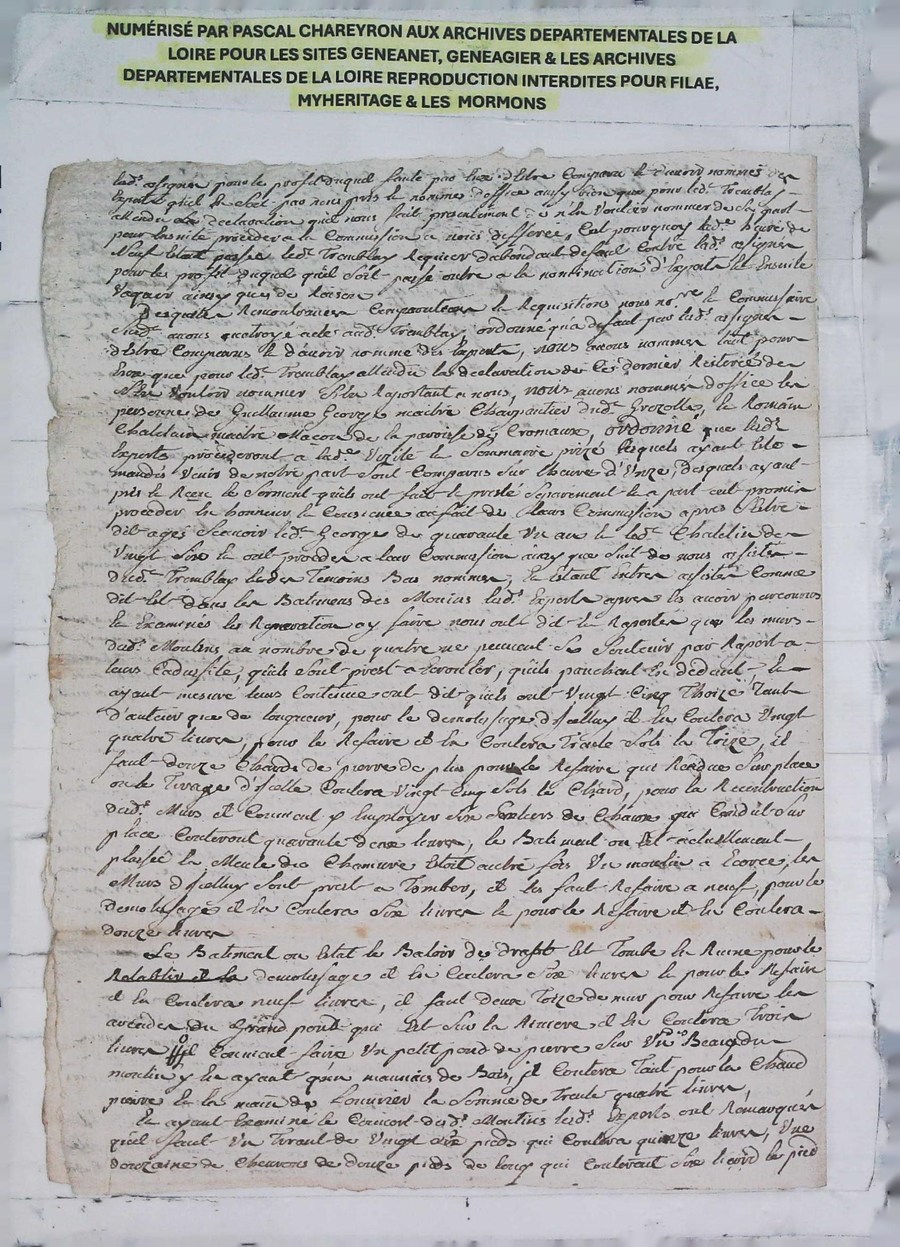 NUMÉRISÉ PAR PASCAL CHAREYRON AUX ARCHIVES DEPARTEMENTALES DE LA
LOIRE POUR LES SITES GENEANET, GENEAGIER & LES ARCHIVES
DEPARTEMENTALES DE LA LOIRE REPRODUCTION INTERDITES POUR FILAE,
MYHERITAGE & LES MORMONS
pour le profit duquel faute par eux d'Etre Comparu et d'avoir nommés des
Experts qu'il en soit par nous pris et nommé d'office aussy bien que pour led. Tremblay
attendu la declaration qu'il nous fait presentement de n'en Vouloir nommer de sa part
pour Ensuite proceder a la Commission a nous differée, C'est pourquoy lad. heure de
Neuf Etant passée led. Tremblay Requiert defaut Contre lad. assignée
pour le profit duquel qu'il soit passé outre a la nomination d'Experts et Ensuite
Vaquer ainsy que de Raison
Desquelles Remontrances Comparution et Requisitions nous le Commissaire
avons octroyé acte aud. Tremblay, ordonné qu'a defaut par lad. assignée
d'Etre Comparus et d'avoir nommé des Experts, nous avons nommés tant pour
Eux que pour led. Tremblay attendu la declaration de Ce dernier
Vouloir nommer a nous, nous avons nommés d'office les
personne de Guillaume George maitre Charpantier dud. Grezolle, et Romain
Chatelain maitre Maçon de la paroisse de Cremaux, ordonné que lesd.
Experts procederont a lad. Visite et Sommaire prizé lesquels ayant Eté
mandés Venir de notre part Sont Comparus Sur l'heure d'Unze, Desquels ayant
pris et Receu le Serment qu'ils ont fait et presté Separement et a part ont promis
proceder en honneur et Consience au fait de leur Commission apres S'Etre
dit agés Scavoir led. George de quarante Un an et led. Chatelin de
Vingt Six et ont procedés a leur Commission ainsy que Suit de nous assistés
dud. Tremblay et des Temoins Bas nommés, Et Etant Entrés assistés Comme
dit Est dans les Batimens des Moulins lesd. Experts apres les avoir parcourus
et Examinés les Reparation a y faire nous ont dit et Raportés que les murs
dud. Moulins au nombre de quatre ne peuvent Se Soutenir par Raport a
leurs Caducité, qu'ils Sont prest a Ecrouler, qu'ils panchent En dedant, et
ayant mesuré leurs Contenue ont dit qu'ils ont Vingt Cinq Thoize Tant
d'auteur que de longueur, pour le demolissage d'icelluy il En Coutera Vingt
quatre livres, pour le Refaire il En Coutera Trante Sols la Toize, il
faut douze Chards de pierre de plus pour le Refaire qui Rendue Sur place
ou le Tirage d'icelle Coutera Vingt Cinq Sols le Chard, pour la Reconstruction
dud. Murs il Convient y Employer Six de Chaux qui Conduit Sur
place Couteront quarante deux livres, le Batiment ou Est actuellement
plassé la Meule du Chanvre Etoit autre fois Un moulin a Ecorce, les
Murs d'icelluy Sont prest a Tomber, il les faut Refaire a neuf, pour le
demolissage il En Coutera Six livres et pour le Refaire il En Coutera
douze livres
Le Batiment ou Etoit le Batoir de drapt Est Tombé En Ruine pour le
demolissage il En Coutera Six livres et pour le Refaire
il En Coutera neuf livres, il faut deux Toize de mur pour Refaire les
du Grand pont qui Est Sur la Riviere il En Coutera Trois
livres Il Convient faire Un petit pond de pierre Sur
moulin y En ayant q'un mauvais de Bois, il Coutera Tant pour la Chaud
pierre Et la main de l'ouvrier la Somme de Trante quatre livres,
Et ayant Examiné le Couvert dud. Moulins lesd. Experts ont Remarqués
qu'il faut Un Tirant de Vingt Six pieds qui Coutera quinze livres, Une
douzaine de Chevrons de douze pieds de long qui Couteront Six liard le pied